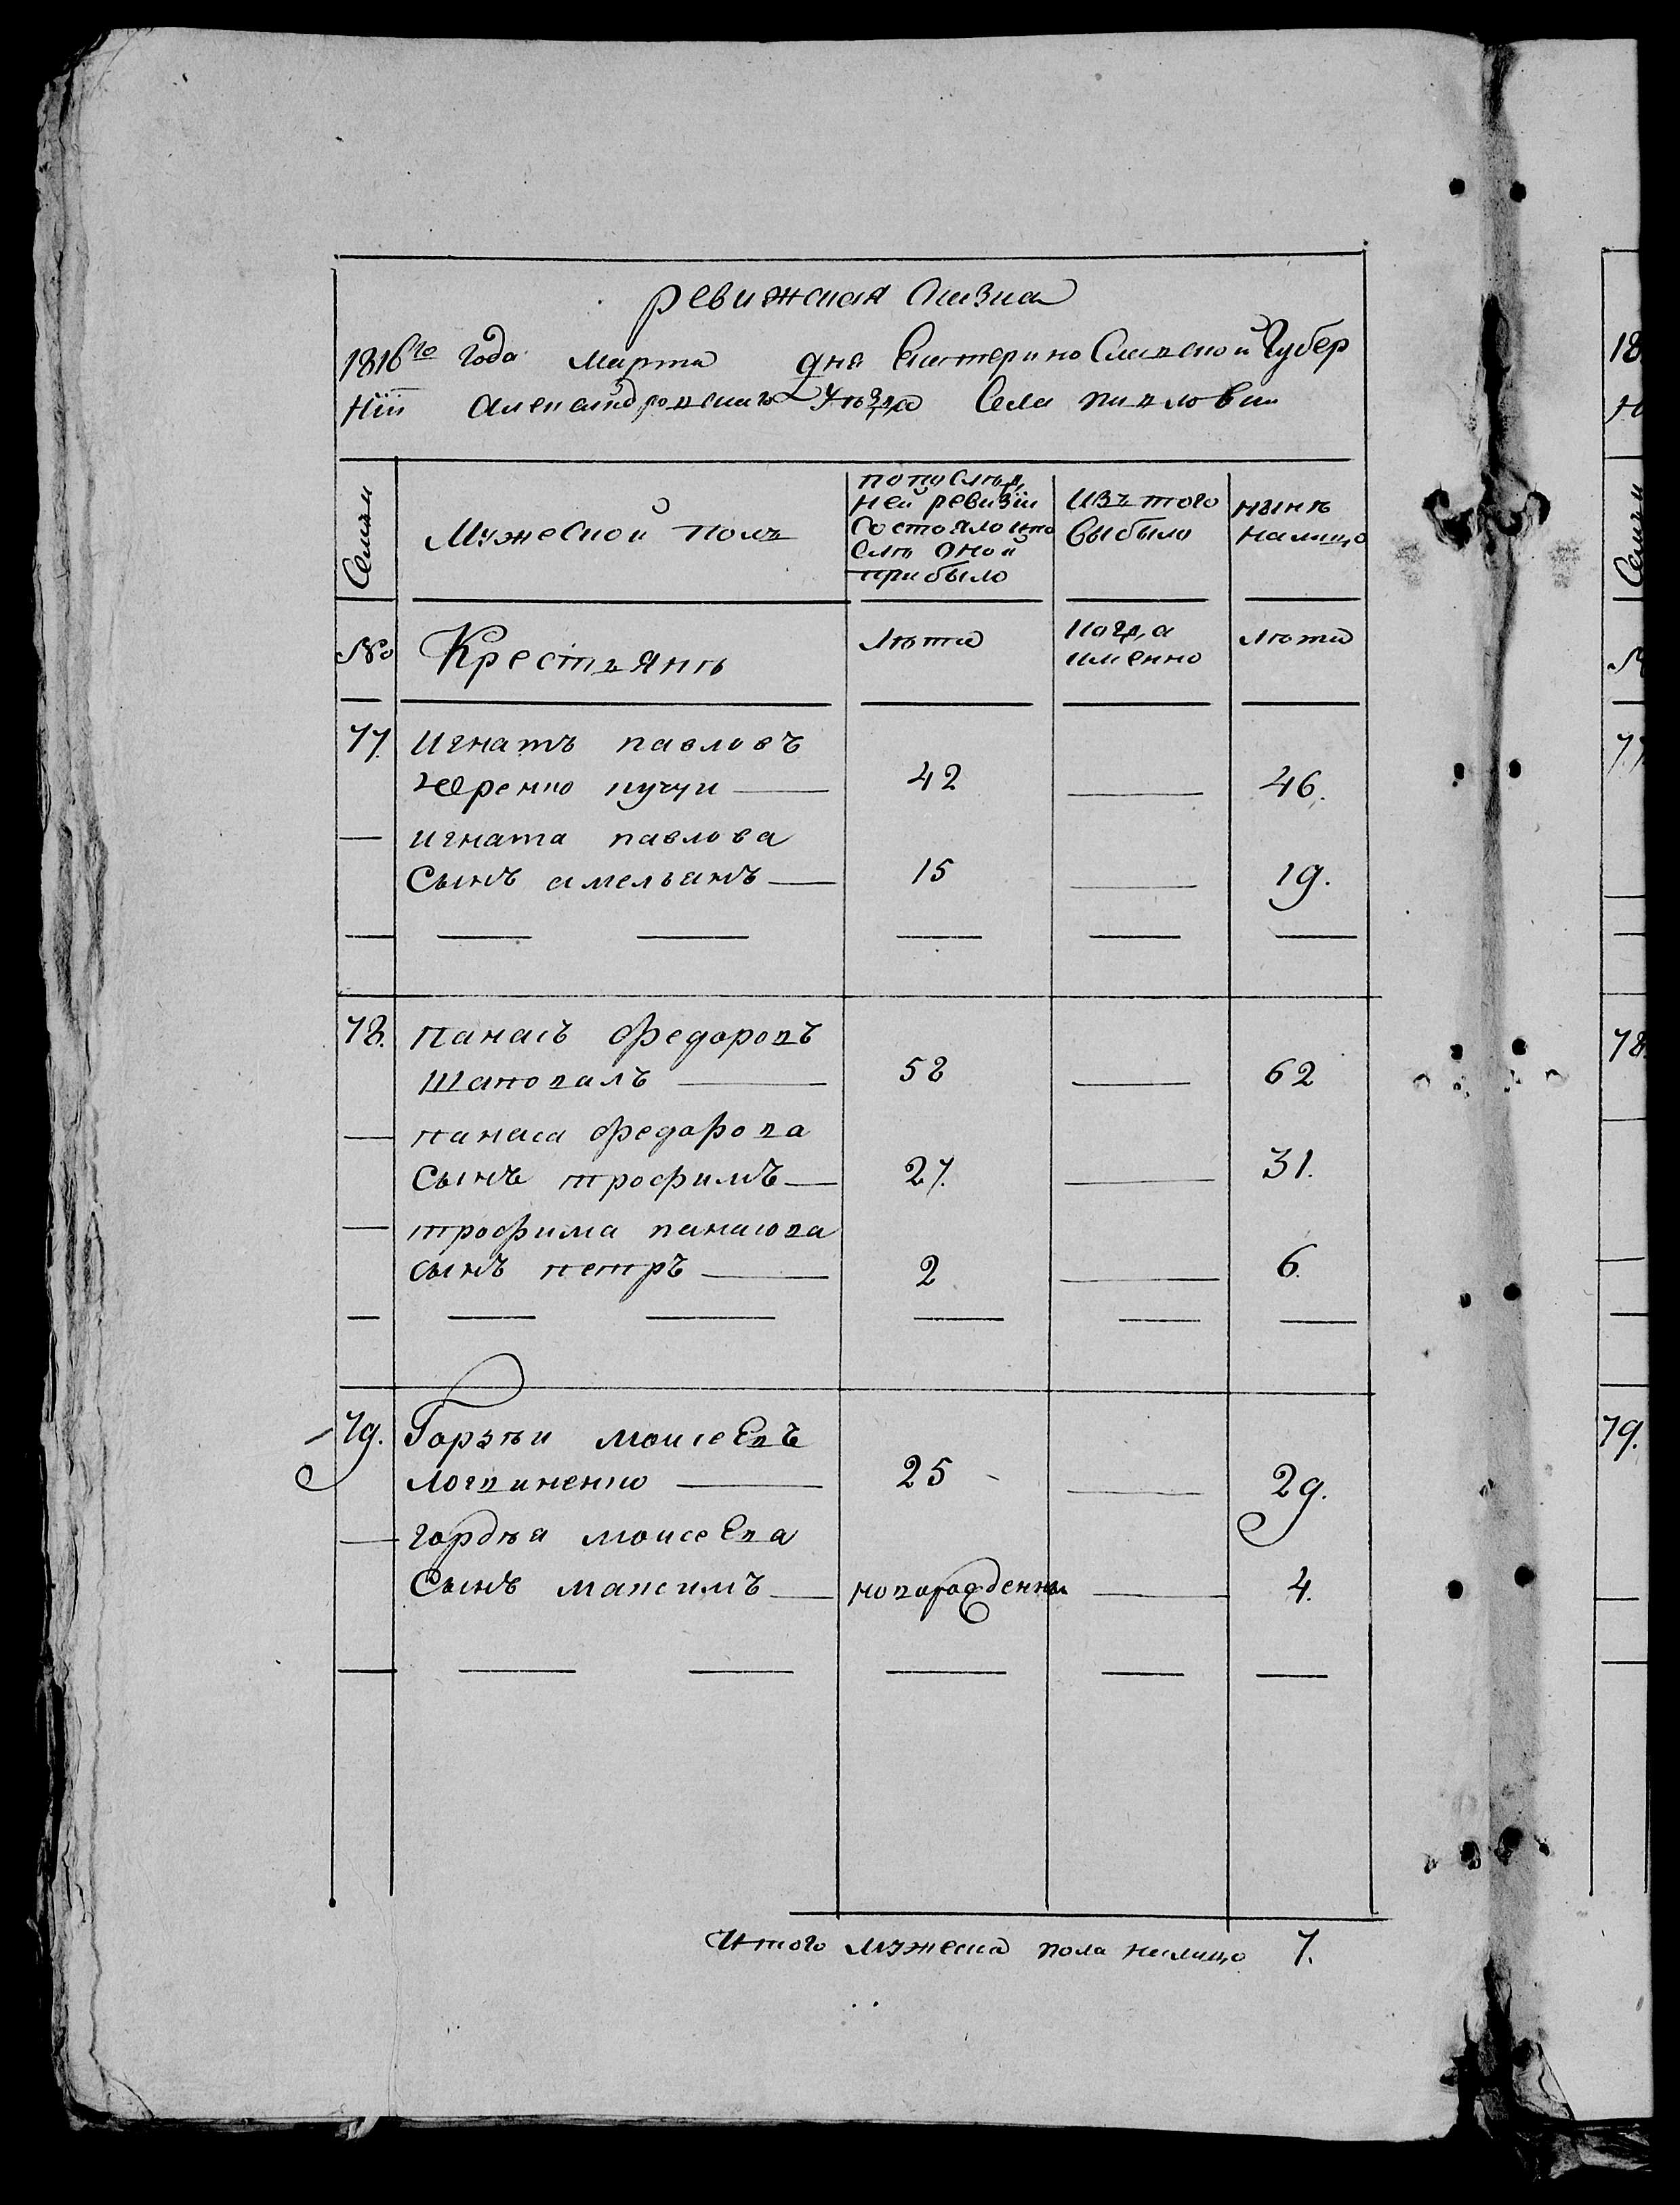 ревижская Сказка
1816го года марта дня Екатерино Славской Губер
нїи Александровскаго Уезда Села павловки
Семьи
Мужеской полъ
попослѣд,
ней ревизїи
состояло ипо
слѣ оной
прибыло
изъ того
выбыло
нынѣ
налицо
№
Крестьянъ
лѣта
когда
именно
лѣта
77. Игнатъ павловъ
42 46.
— игната павлова
Сынъ амельянъ — 15 19.
78. панасъ Федоровъ
Шаповалъ — 58 62
— панаса Федорова
Сынъ трофимъ — 27. 31.
— трофима панасова
сынъ петръ — 2 6.
79. Гордѣй моисеевъ
логвиненко — 25 29.
— гордѣя моисеева
Сынъ максимъ — новорожденны 4.
Итого мужеска пола налицо 7.
18
н
Семьи
№
77
78
79.